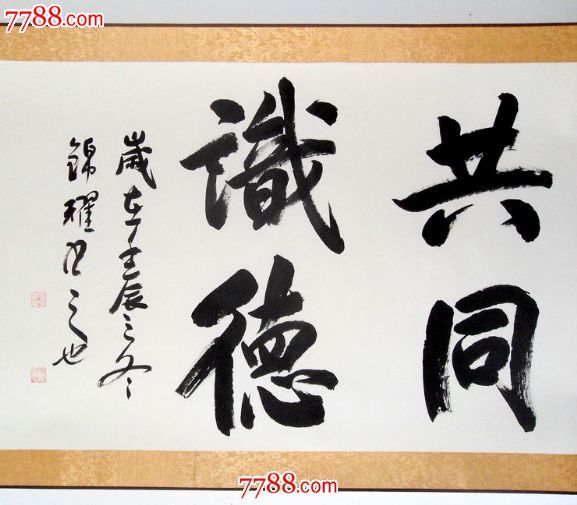 7788.com
7788.com
共同
識德
歲在壬辰之冬
錦耀书之也
7788.com